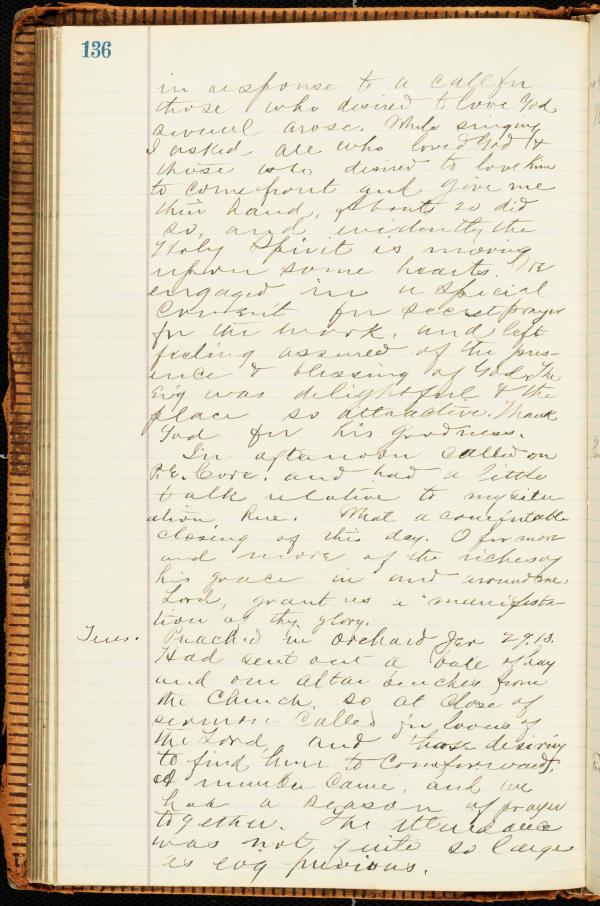 136
in response to a call for
those who desired to love God
several arose. While singing
I asked all who loved God &
those who desired to love him
to come front and give me
their hand, About 20 did
so, and evidently the
Holy Spirit is moving
upon some hearts. We
engaged in a special
covenant for secret prayer
for the work, and left
feeling assured of the pres-
ence & blessing of God. The
Ev'g was delightful & the
place so attractive. Thank
God for his goodness.
In afternoon called on
P.E. Cora. and had a little
talk relative to my situ-
ation here. What a comfortable
closing of this day. O for more
and more of the riches of
his grace in and around me.
Lord, grant us a manifesta-
tion of thy glory.
Tues. Preached in orchard Jer 29.13.
Had sent out a bale of hay
and our altar benches from
the Church, so at close of
sermon called for lovers of
the Lord, and those desiring
to find him to come forward,
A number came, and we
had a season of prayer
together. The attendance
was not quite so large
as evg previous.